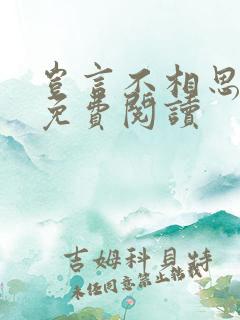 豈言不相思
免費閱讀
吉姆科貝特
未任同意禁止轉載